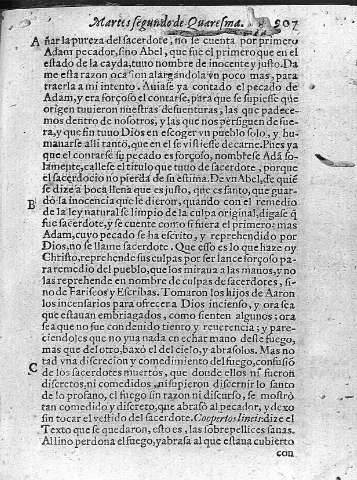 Martes segundo de Quaresma. 907
A ñar la pureza del sacerdote, no se cuenta por primero
Adam pecador, sino Abel, que fue el primero que en el
estado de la cayda, tuuo nombre de inocente y justo. Da
me esta razon ocasion alargandola vn poco mas, para
traerla a mi intento. Auiase ya contado el pecado de
Adam, y era forçoso el contarse, para que se supiesse que
origen tuuieron nuestras desuenturas, las que padece-
mos dentro de nosotros, y las que nos persiguen de fue-
ra, y que fin tuuo Dios en escoger vn pueblo solo, y hu-
manarse alli tanto, que en el se vistiesse de carne. Pues ya
que el contarse su pecado es forçoso, nombrese Adã so-
lamente, callese el titulo que tuuo de sacerdote, porque
el sacerdocio no pierda de su estima. De vn Abel, de quiẽ
se dize a boca llena que es justo, que es santo, que guar-
B dò la inocencia que le dieron, quando con el remedio
de la ley natural se limpio de la culpa original, digase q̃
fue sacerdote, y se cuente como si fuera el primero: mas
Adam, cuyo pecado se ha escrito, y reprehendido por
Dios, no se llame sacerdote. Que esso es lo que haze oy
Christo, reprehende sus culpas por ser lance forçoso pa-
ra remedio del pueblo, que los miraua a las manos, y no
las reprehende en nombre de culpas de sacerdotes, si-
no de Fariseos y Escribas. Tomaron los hijos de Aaron
los incensarios para ofrecer a Dios incienso, y ora sea
que estauan embriagados, como sienten algunos; ora
sea que no fue con deuido tiento y reuerencia; y pare-
ciendoles que no yua nada en echar mano desse fuego,
mas que del otro, baxò el del cielo, y abrasolos. Mas no
tad vna discrecion y comedimiento del fuego, confusiõ
C de los sacerdotes muertos, que donde ellos ni fueron
discretos, ni comedidos, ni supieron discernir lo santo
de lo profano, el fuego sin razon ni discurso, se mostrò
tan comedido y discreto, que abrasò al pecador, y dexo
sin tocar el vestido del sacerdote. Coopertos lineis: dize el
Texto que se quedaron, esto es, las sobrepellices sanas.
Al lino perdona el fuego, y abrasa al que estaua cubierto
con